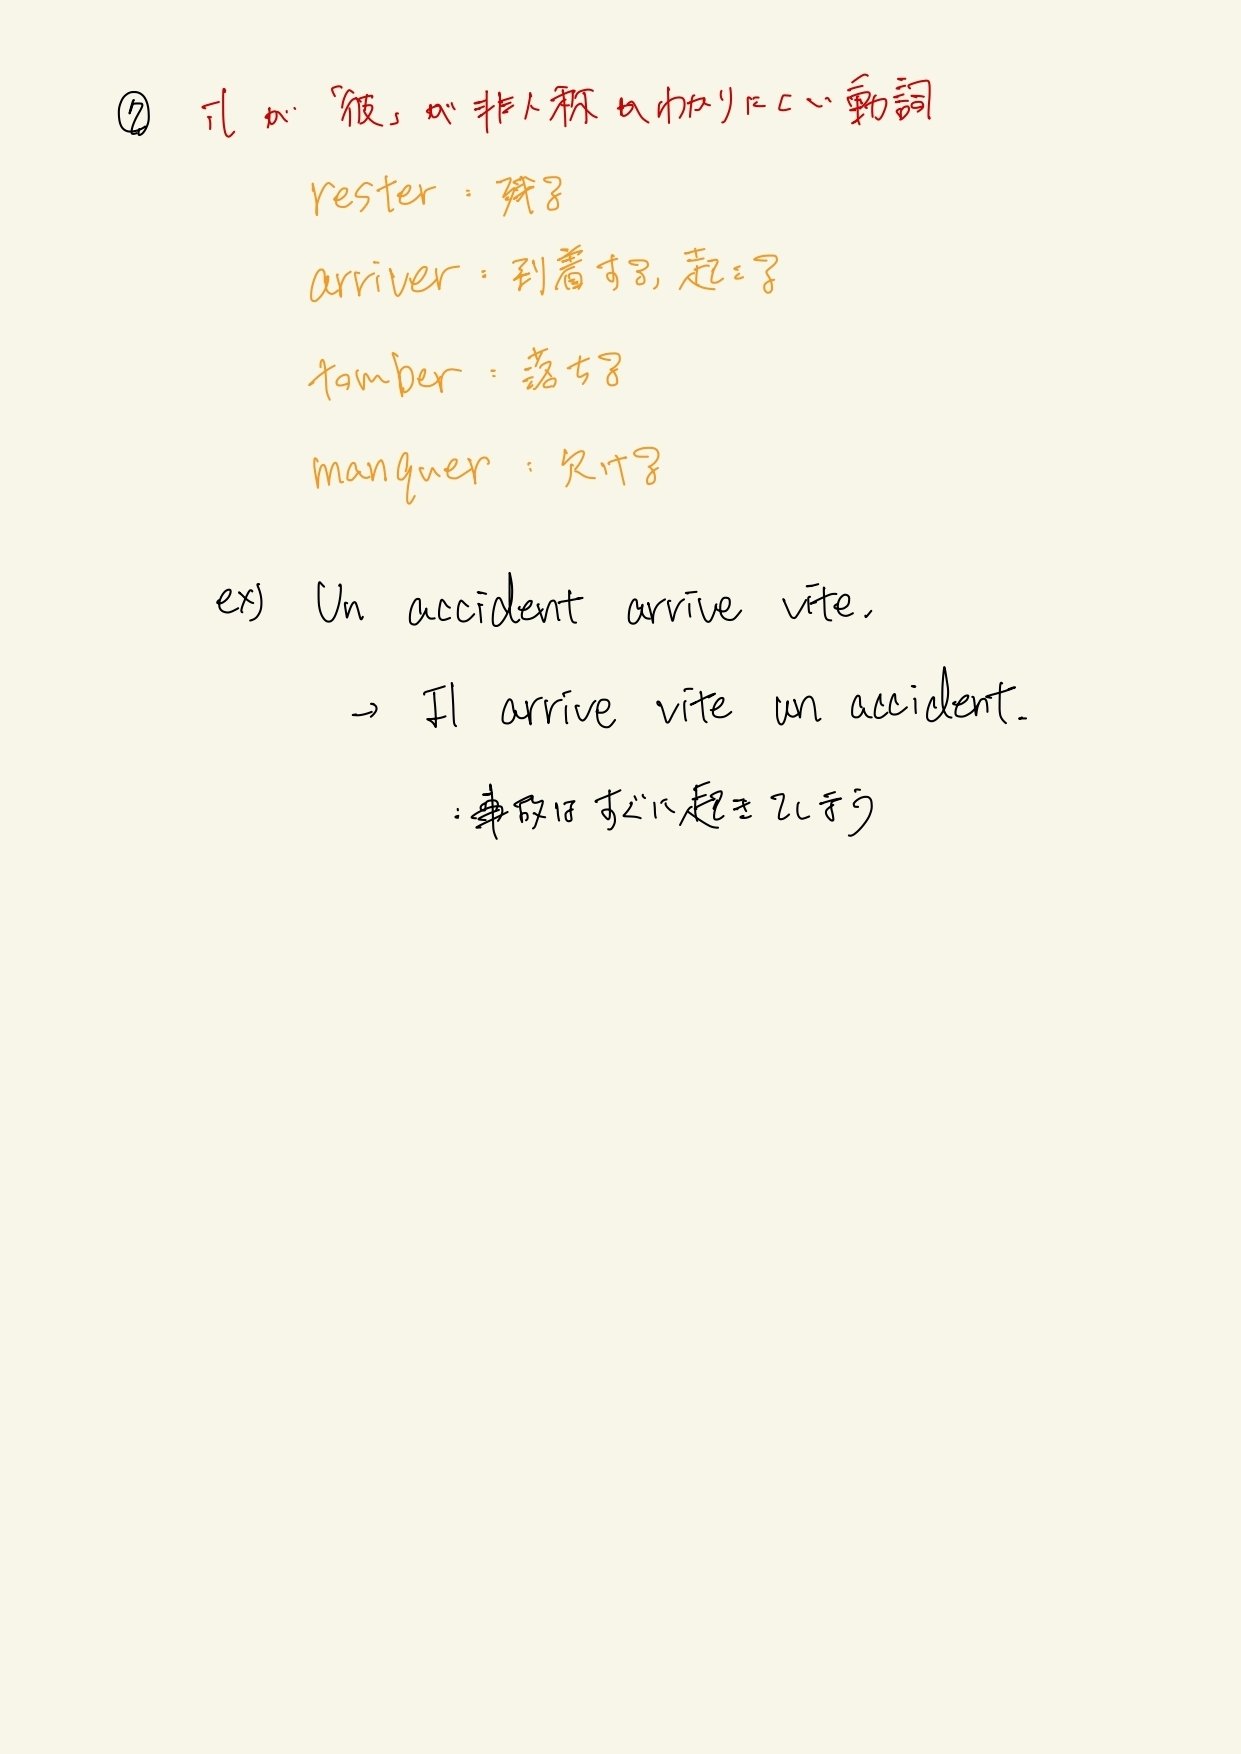 ⑦ ilが「彼」か非人称かわかりにくい動詞
rester : 残る
arriver : 到着する, 起こる
tomber : 落ちる
manquer : 欠ける
ex) Un accident arrive vite.
→ Il arrive vite un accident.
: 事故はすぐに起きてしまう